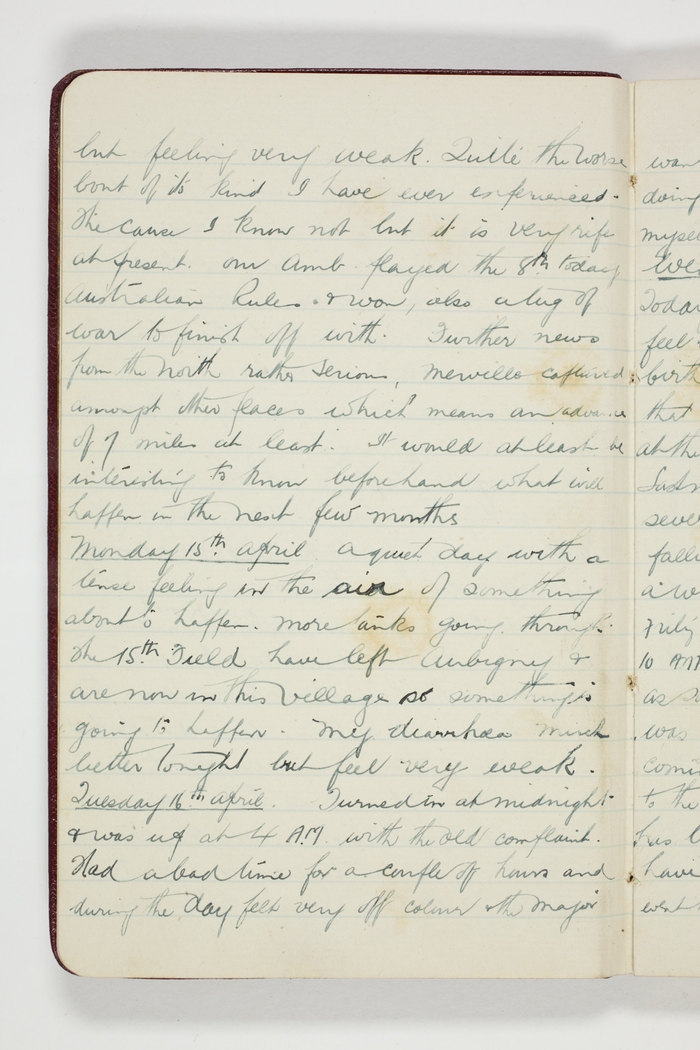 but feeling very weak. Quite the worse
bout of its kind I have ever experienced.
The cause I know not but it is very rife
at present. our Amb. played the 8th today
Australian Rules & won, also a tug of
war to finish off with. Further news
from the North rather serious, Merville captured
amongst other places which means an advance
of 7 miles at least. It would at least be
interesting to know beforehand what will
happen in the next few months
Monday 15th April a quiet day with a
tense feeling in the air of something
about to happen. more tanks going through.
The 15th Field have left Aubigny &
are now in this village so something is
going to happen. My diarrhoea much
better tonight but feel very weak.
Tuesday 16th April. Turned in at midnight
& was up at 4 A.M. with the old complaint.
Had a bad time for a couple of hours and
during the day felt very off colour & the Major
wan
doing
myse
We
Today
feel
birth
that
at the
Sust
seve
falle
a w
Frily
10 AM
as s
was
comi
to the
has l
have
went